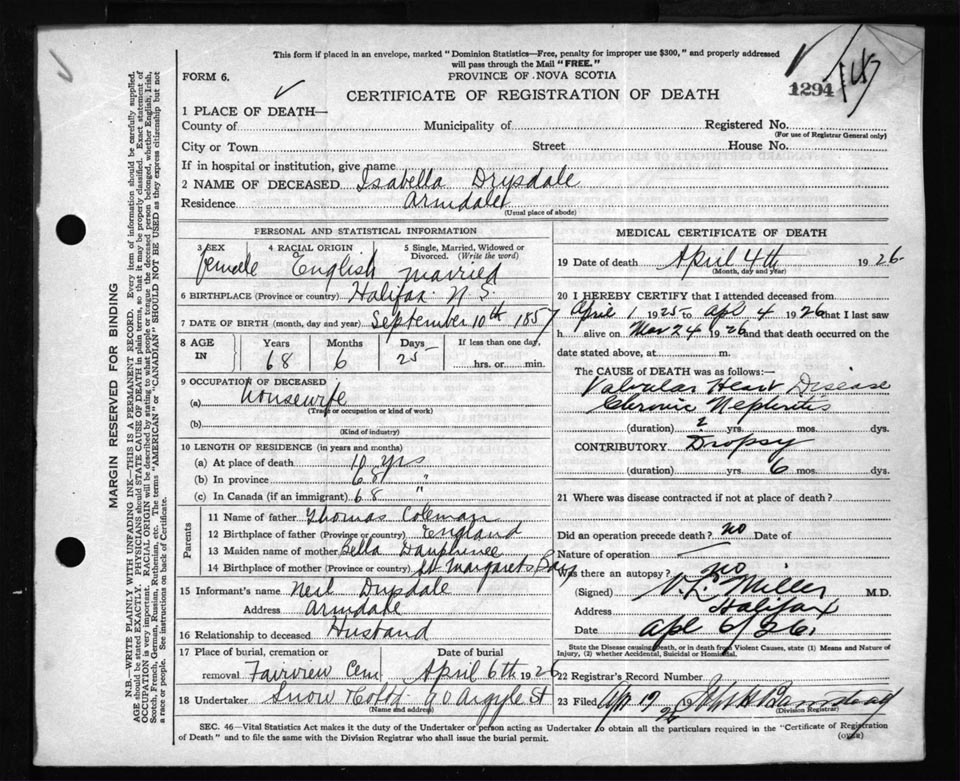 This form if placed in an envelope, marked "Dominion Statistics—Free, penalty for improper use $300," and properly addressed
will pass through the Mail "FREE."
FORM 6.
PROVINCE OF NOVA SCOTIA
CERTIFICATE OF REGISTRATION OF DEATH
1294
147
1 PLACE OF DEATH—
County of
Municipality of
Registered No.
(For use of Registrar General only)
City or Town
Street
House No.
If in hospital or institution, give name
2 NAME OF DECEASED Isabella Drysdale
Residence Armdale
(Usual place of abode)
PERSONAL AND STATISTICAL INFORMATION
3 SEX
4 RACIAL ORIGIN
5 Single, Married, Widowed or Divorced. (Write the word)
female English married
6 BIRTHPLACE (Province or country) Halifax N S.
7 DATE OF BIRTH (month, day and year) September 10th 1857
8 AGE IN
Years Months Days If less than one day,
68 6 25 hrs. or min.
9 OCCUPATION OF DECEASED
(a) housewife
(Trade or occupation or kind of work)
(b)
(Kind of industry)
10 LENGTH OF RESIDENCE (in years and months)
(a) At place of death 10 yrs
(b) In province 68 "
(c) In Canada (if an immigrant) 68 "
Parents
11 Name of father Thomas Coleman
12 Birthplace of father (Province or country) England
13 Maiden name of mother Bella Dauphinee
14 Birthplace of mother (Province or country) St Margarets Bay
15 Informant's name Neil Drysdale
Address Armdale
16 Relationship to deceased Husband
17 Place of burial, cremation or
Date of burial
removal Fairview Cem April 6th 1926
18 Undertaker Snow & Co Ltd 90 Argyle St
(Name and address)
MEDICAL CERTIFICATE OF DEATH
19 Date of death April 4th 1926
(Month, day and year)
20 I HEREBY CERTIFY that I attended deceased from
April 1 1925 to Apl 4 1926 that I last saw
h alive on Mar 24 1926 and that death occurred on the
date stated above, at m.
The CAUSE of DEATH was as follows:—
Valvular Heart Disease
Chronic Nephritis
(duration) 2 yrs. mos. dys.
CONTRIBUTORY Dropsy
(duration) yrs. 6 mos. dys.
21 Where was disease contracted if not at place of death?
Did an operation precede death? no Date of
Nature of operation
Was there an autopsy? no
(Signed) Miller M.D.
Address Halifax
Date Apl 6/26.
State the Disease causing Death, or in death from Violent Causes, state (1) Means and Nature of
Injury, (2) whether Accidental, Suicidal or Homicidal.
22 Registrar's Record Number
23 Filed Apr 17 26
(Division Registrar)
SEC. 46—Vital Statistics Act makes it the duty of the Undertaker or person acting as Undertaker to obtain all the particulars required in the "Certificate of Registration
of Death" and to file the same with the Division Registrar who shall issue the burial permit.
(OVER)
MARGIN RESERVED FOR BINDING
N.B.—WRITE PLAINLY WITH UNFADING INK—THIS IS A PERMANENT RECORD. Every item of information should be carefully supplied.
AGE should be stated EXACTLY. PHYSICIANS should STATE CAUSE OF DEATH in plain terms, so that it may be properly classified. Exact statement of
OCCUPATION is very important. RACIAL ORIGIN will be described by stating to what people or tongue the deceased person belonged, whether English, Irish,
Scotch, French, German, Russian, Ruthenian, etc. The terms "AMERICAN" or "CANADIAN" SHOULD NOT BE USED as they express citizenship but not
a race or people. See instructions on back of Certificate.